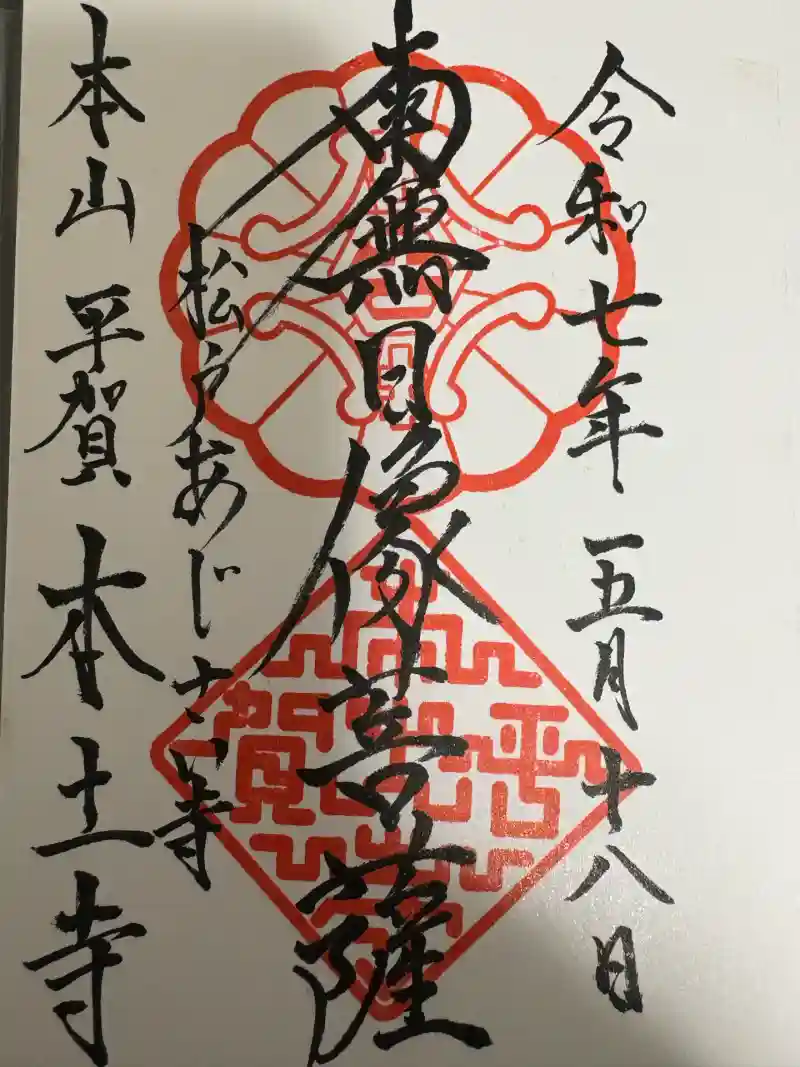 令和七年五月十八日
南無日像菩薩
松戸あじさい寺
本山 平賀 本土寺